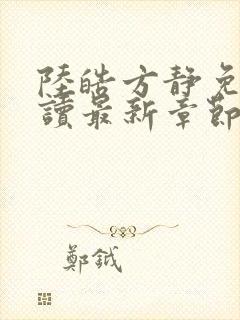 陸皓方靜免
讀最新章節
鄭鉞